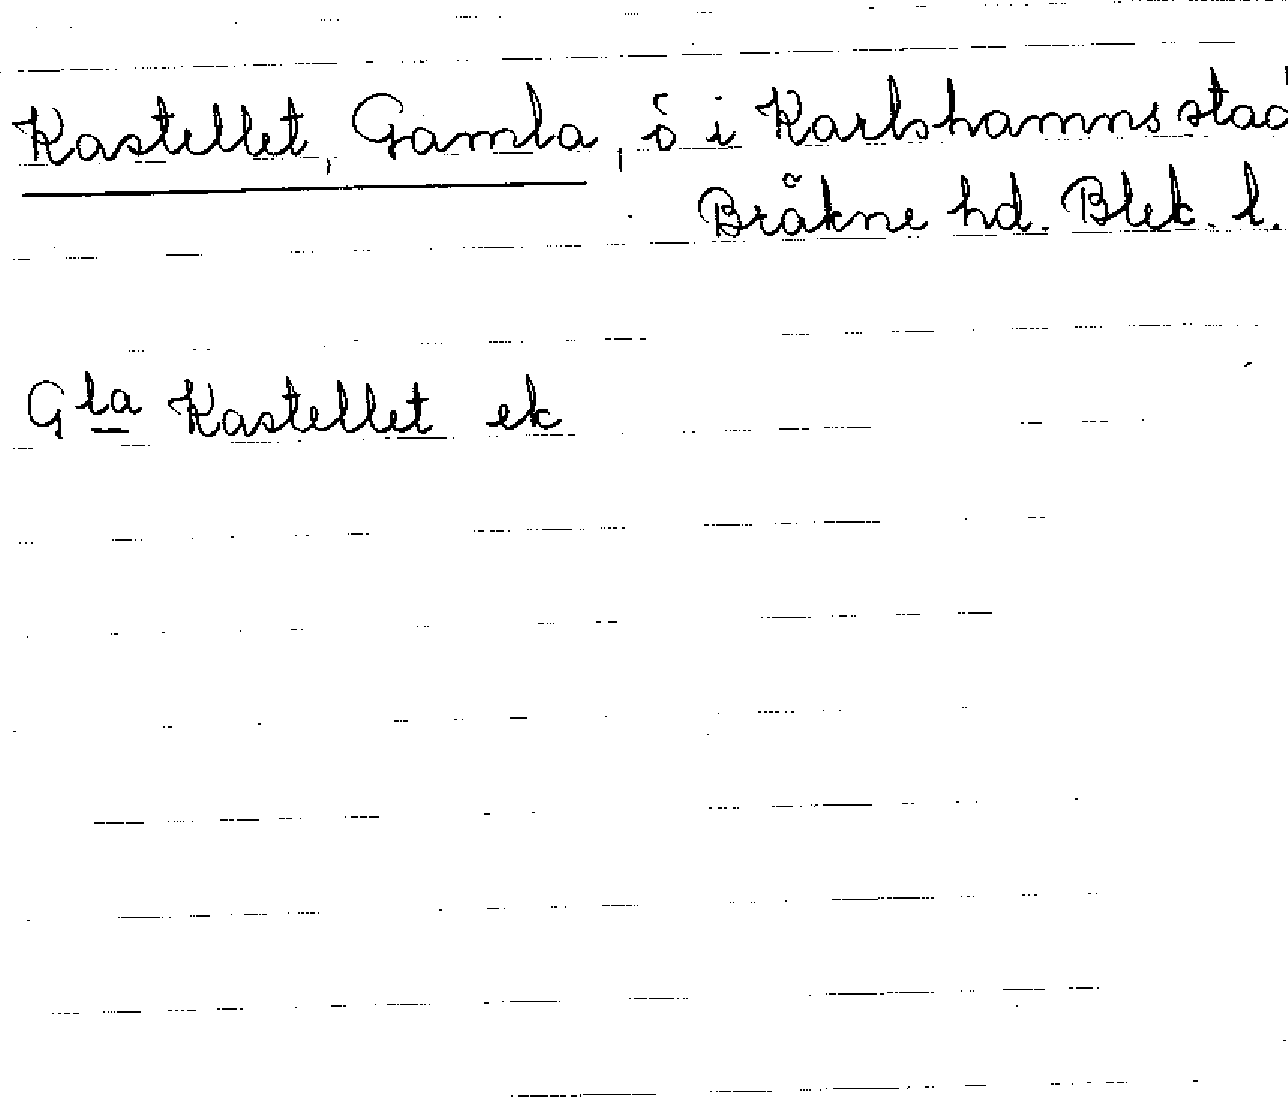 Kastellet, Gamla, ö i Karlshamns stad
Bräkne hd. Blek. l.
Gla Kastellet ek